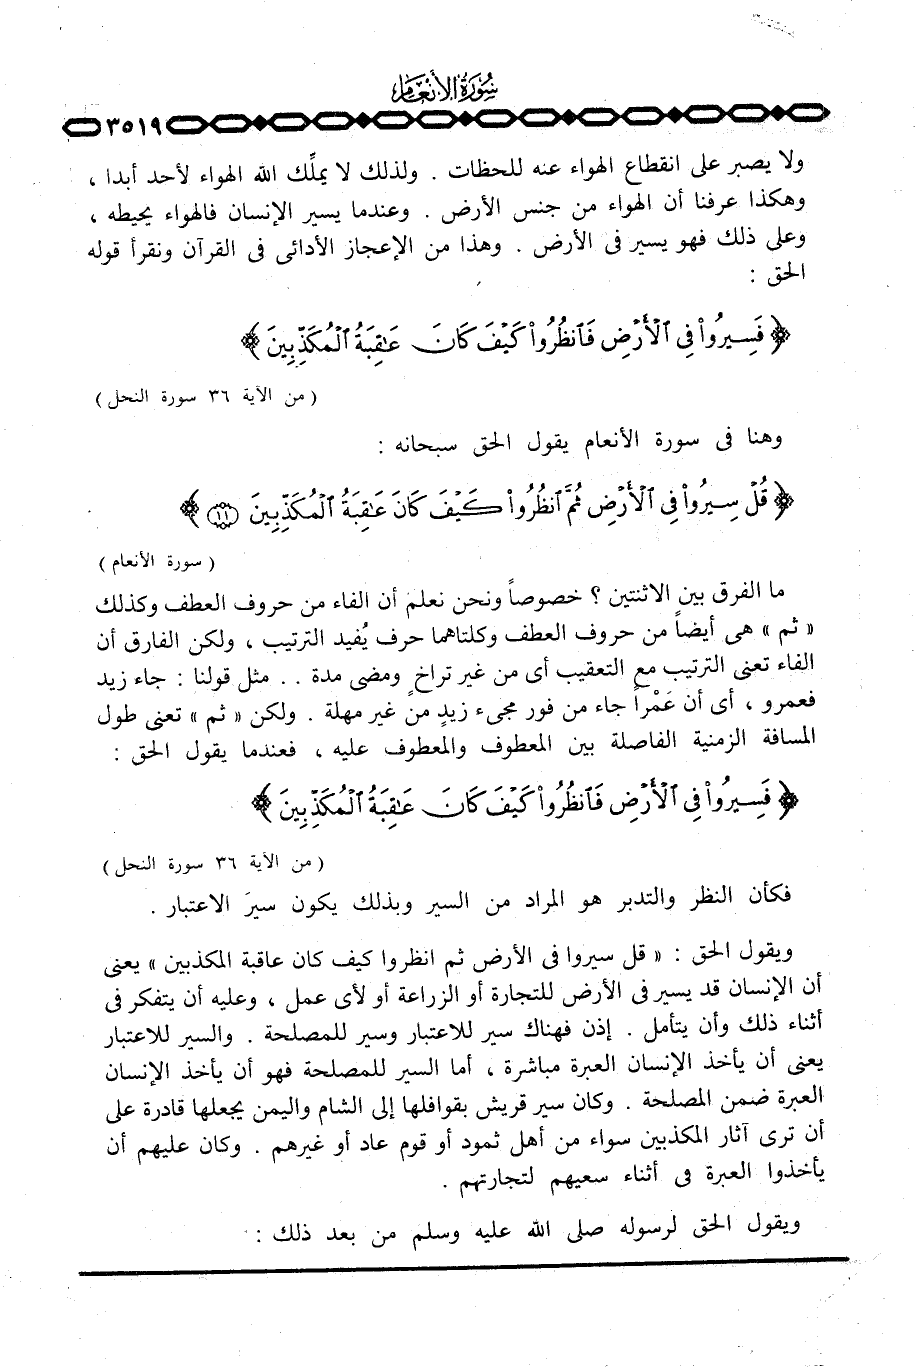 سُورَةُ الأَنْعَامِ
٣٥١٩
ولا يصبر على انقطاع الهواء عنه للحظات . ولذلك لا يملِّك الله الهواء لأحد أبدا ،
وهكذا عرفنا أن الهواء من جنس الأرض . وعندما يسير الإنسان فالهواء يحيطه ،
وعلى ذلك فهو يسير فى الأرض . وهذا من الإعجاز الأدائى فى القرآن ونقرأ قوله
الحق :
﴿ فَسِيرُواْ فِى ٱلۡأَرۡضِ فَٱنظُرُواْ كَيۡفَ كَانَ عَٰقِبَةُ ٱلۡمُكَذِّبِينَ ﴾
( من الآية ٣٦ سورة النحل )
وهنا فى سورة الأنعام يقول الحق سبحانه :
﴿ قُلۡ سِيرُواْ فِى ٱلۡأَرۡضِ ثُمَّ ٱنظُرُواْ كَيۡفَ كَانَ عَٰقِبَةُ ٱلۡمُكَذِّبِينَ ١١ ﴾
( سورة الأنعام )
ما الفرق بين الاثنتين ؟ خصوصاً ونحن نعلم أن الفاء من حروف العطف وكذلك
« ثم » هى أيضاً من حروف العطف وكلتاهما حرف يُفيد الترتيب ، ولكن الفارق أن
الفاء تعنى الترتيب مع التعقيب أى من غير تراخٍ ومضى مدة . . مثل قولنا : جاء زيد
فعمرو ، أى أن عَمْراً جاء من فور مجىء زيدٍ من غير مهلة . ولكن « ثم » تعنى طول
المسافة الزمنية الفاصلة بين المعطوف والمعطوف عليه ، فعندما يقول الحق :
﴿ فَسِيرُواْ فِى ٱلۡأَرۡضِ فَٱنظُرُواْ كَيۡفَ كَانَ عَٰقِبَةُ ٱلۡمُكَذِّبِينَ ﴾
( من الآية ٣٦ سورة النحل )
فكأن النظر والتدبر هو المراد من السير وبذلك يكون سيرَ الاعتبار .
ويقول الحق : « قل سيروا فى الأرض ثم انظروا كيف كان عاقبة المكذبين » يعنى
أن الإنسان قد يسير فى الأرض للتجارة أو الزراعة أو لأى عمل ، وعليه أن يتفكر فى
أثناء ذلك وأن يتأمل . إذن فهناك سير للاعتبار وسير للمصلحة . والسير للاعتبار
يعنى أن يأخذ الإنسان العبرة مباشرة ، أما السير للمصلحة فهو أن يأخذ الإنسان
العبرة ضمن المصلحة . وكان سير قريش بقوافلها إلى الشام واليمن يجعلها قادرة على
أن ترى آثار المكذبين سواء من أهل ثمود أو قوم عاد أو غيرهم . وكان عليهم أن
يأخذوا العبرة فى أثناء سعيهم لتجارتهم .
ويقول الحق لرسوله صلى الله عليه وسلم من بعد ذلك :